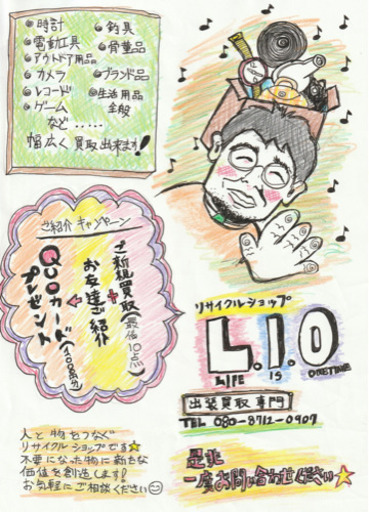 時計
電動工具
アウトドア用品
カメラ
レコード
ゲーム
釣具
骨董品
ブランド品
生活用品
全般
など.....
幅広く買取出来ます!
ご紹介キャンペーン
ご新規買取(最低10点)
+
お友達ご紹介
QUOカード(500円分)
プレゼント
リサイクルショップ
L.I.O
LIFE IS ONETIME
出張買取専門
TEL 080-8712-0907
人と物をつなぐ
リサイクルショップです
不要になった物に新たな
価値を創造します!
お気軽にご相談ください
是非
一度お問い合わせください